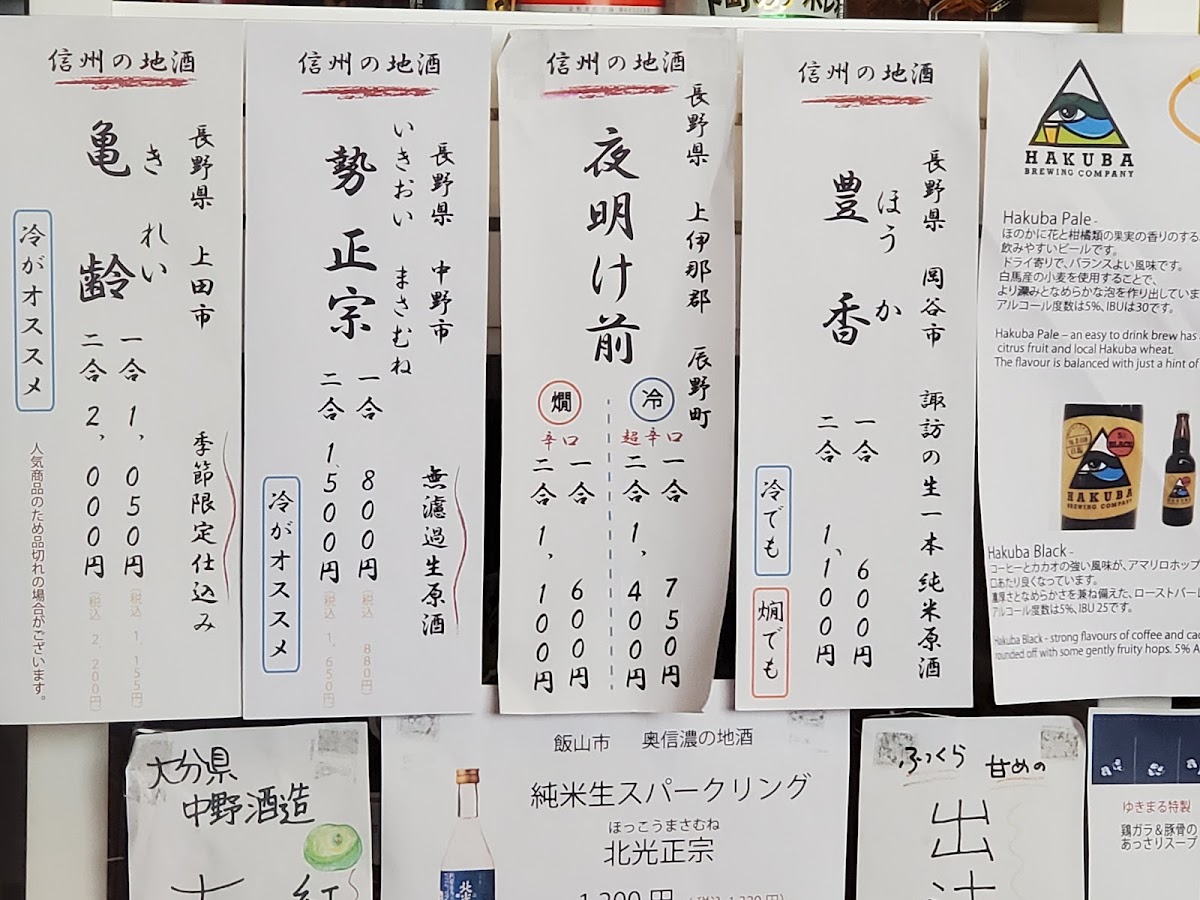 信州の地酒
長野県 上田市 季節限定仕込み
きれい
亀齢
一合 1,050円(税込 1,155円)
二合 2,000円(税込 2,200円)
冷がオススメ
人気商品のため品切れの場合がございます。
信州の地酒
長野県 中野市 無濾過生原酒
いきおい まさむね
勢正宗
一合 800円(税込 880円)
二合 1,500円(税込 1,650円)
冷がオススメ
信州の地酒
長野県 上伊那郡 辰野町
夜明け前
冷
超辛口
一合 750円
二合 1,400円
燗
辛口
一合 600円
二合 1,100円
信州の地酒
長野県 岡谷市 諏訪の生一本 純米原酒
ほうか
豊香
一合 600円
二合 1,100円
冷でも
燗でも
HAKUBA
BREWING COMPANY
Hakuba Pale -
ほのかに花と柑橘類の果実の香りのする
飲みやすいビールです。
ドライ寄りで、バランスよい風味です。
白馬産の小麦を使用することで、
より濃みとなめらかな泡を作り出していま
アルコール度数は5%、IBUは30です。
Hakuba Pale – an easy to drink brew has
citrus fruit and local Hakuba wheat.
The flavour is balanced with just a hint of
HAKUBA
BREWING COMPANY
Hakuba Black -
コーヒーとカカオの強い風味が、アマリロホップ
口あたり良くなっています。
濃厚さとなめらかさを兼ね備えた、ローストバーレ
アルコール度数は5%、IBU 25です。
Hakuba Black - strong flavours of coffee and cac
rounded off with some gently fruity hops. 5% A
大分県
中野酒造
飯山市 奥信濃の地酒
純米生スパークリング
ほっこうまさむね
北光正宗
1,200円
ふっくら 甘めの
出
ゆきまる特製
鶏ガラ&豚骨の
あっさりスープ